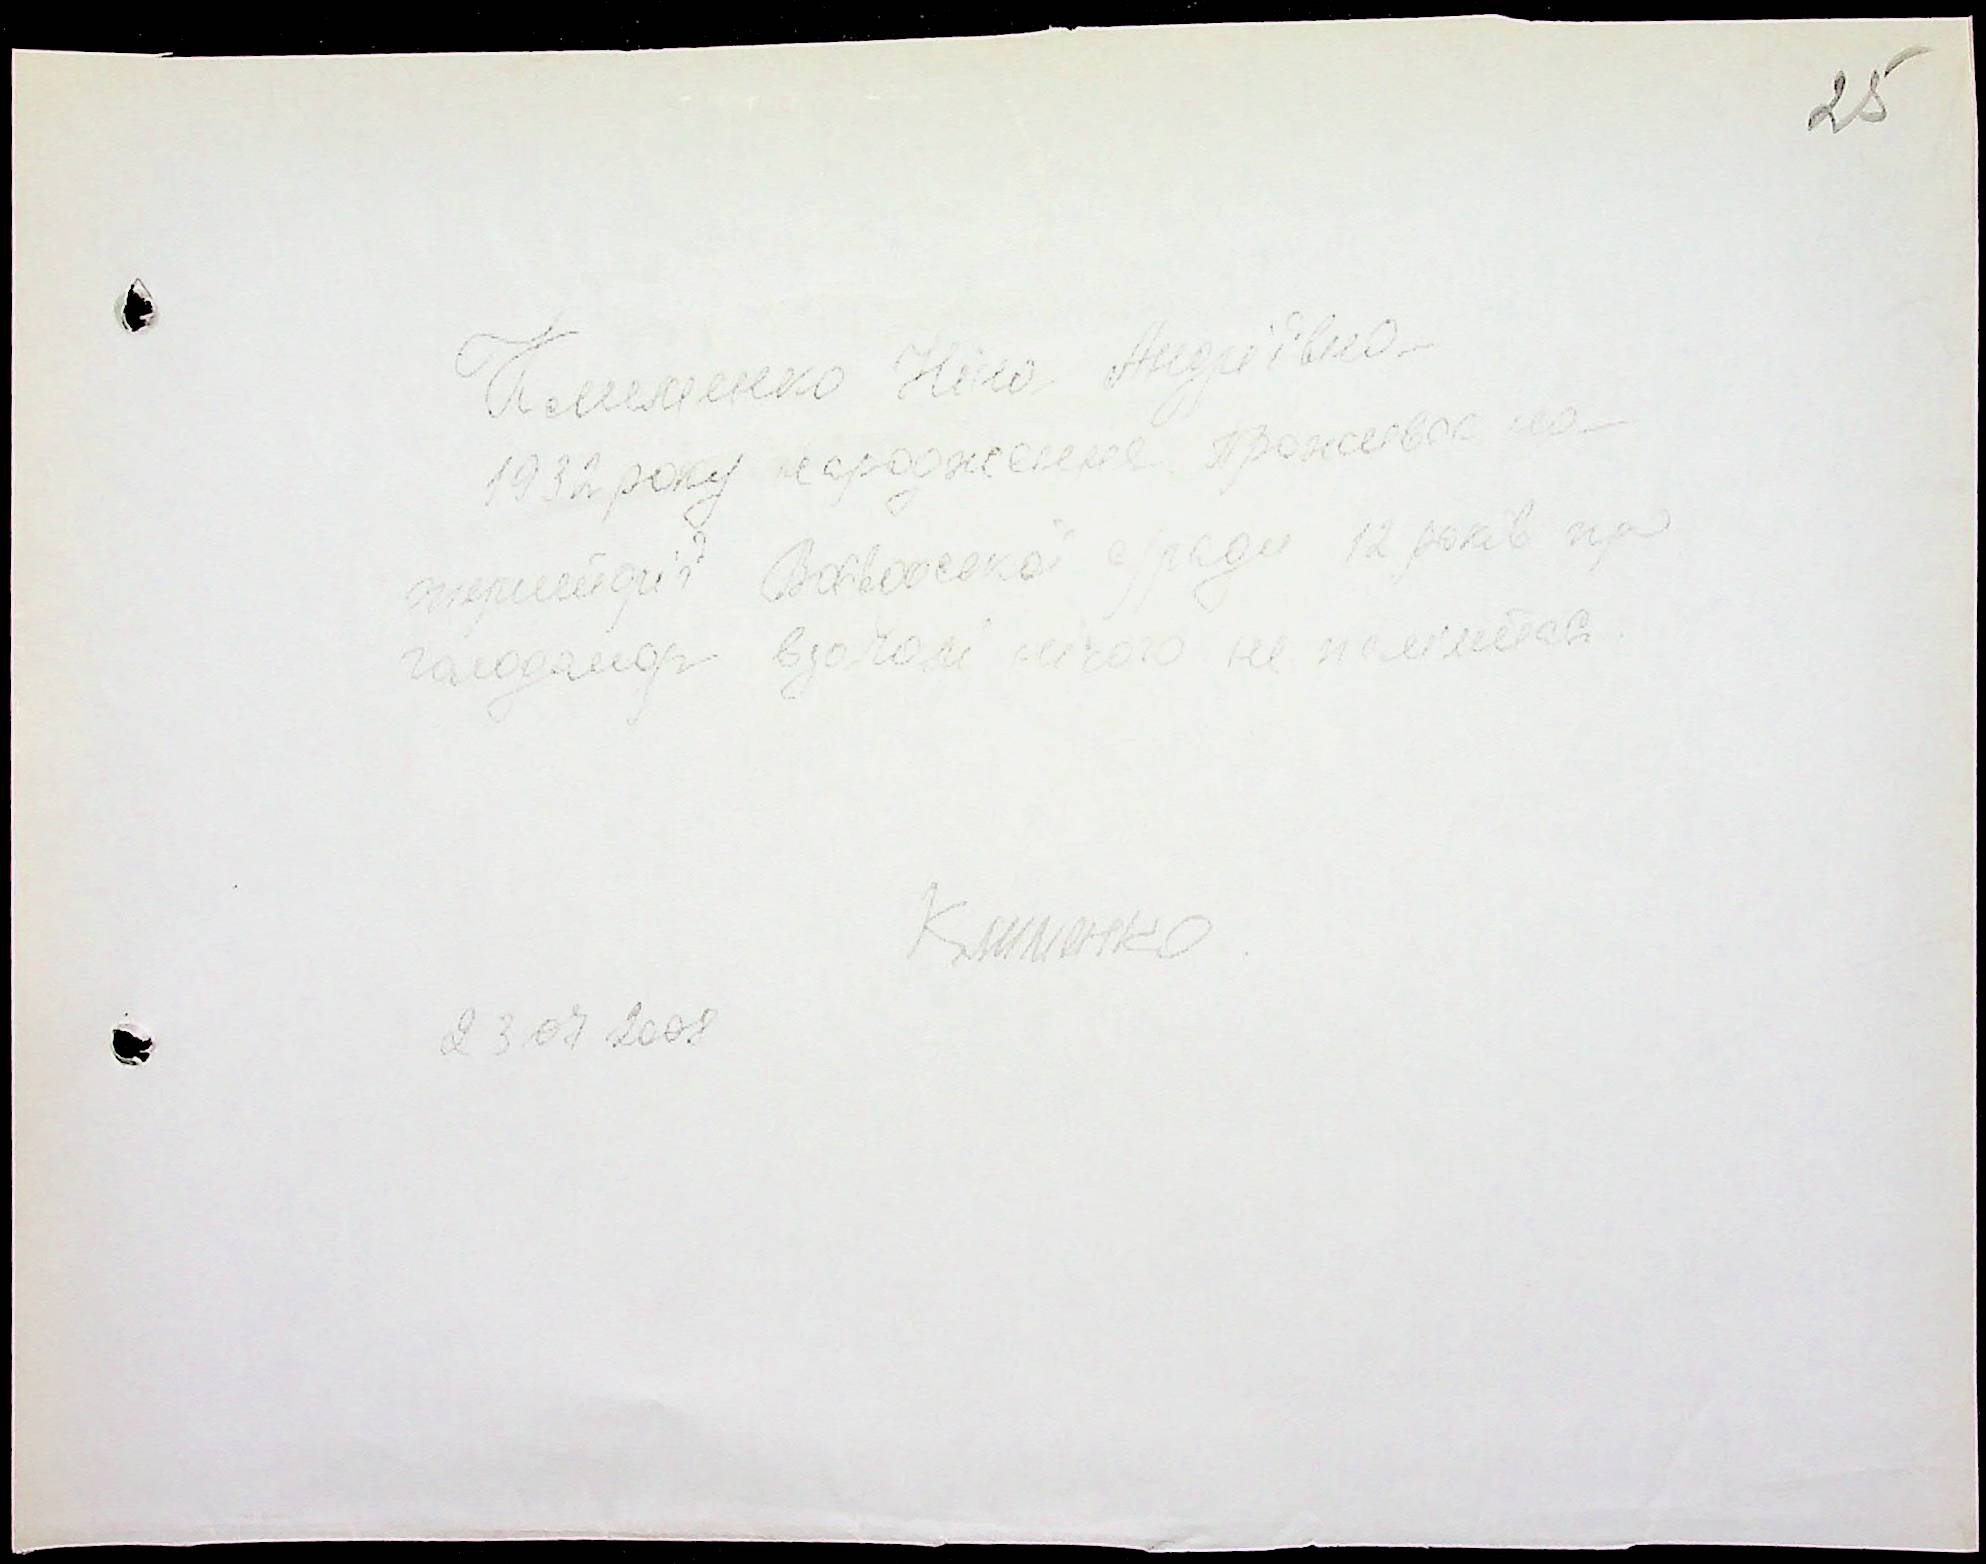 25
Клименко Ніна Андріївна
1932 року народження проживає на
території сради 12 років про
голодомор взагалі нічого не памятає.
Клименко.
23 07 2008